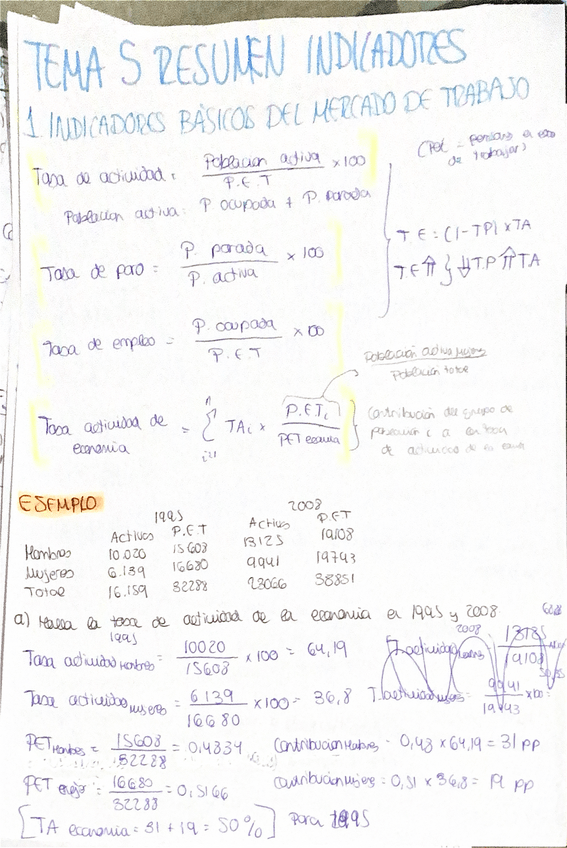 TEMA 5 RESUMEN INDICADORES
1 INDICADORES BÁSICOS DEL MERCADO DE TRABAJO
Tasa de actividad = Población activa / P.E.T × 100
Población activa: P ocupada + P. parada
Tasa de paro = P. parada / P. activa × 100
Tasa de empleo = P. ocupada / P.E.T × 100
T.E = (1 - TP) × TA
T.E ⇑ } ⇓ T.P ⇑ TA
Tasa actividad de economía = n Σ i=1 TAi × P.E.Ti / PET economía
Población activa mujeres / Población total
Contribución del grupo de
población i a la tasa
de actividad de la
EJEMPLO
1995 2008
Activos P.E.T Activos P.E.T
Hombres 10.020 15608 13125 19108
Mujeres 6.139 16680 9941 19743
Total 16.159 32288 23066 38851
a) Halla la tasa de actividad de la economía en 1995 y 2008
1995
Tasa actividad Hombres = 10020 / 15608 × 100 = 64,19
2008
T. actividad Hombres = 19108
Tasa actividad Mujeres = 6139 / 16680 × 100 = 36,8
T. actividad mujeres = 9941 / 19743 × 100 =
PET Hombres = 15608 / 32288 = 0,4834
Contribución Hombres = 0,48 × 64,19 = 31 pp
PET mujer = 16680 / 32288 = 0,5166
Contribución Mujeres = 0,51 × 36,8 = 19 pp
[TA economía = 31 + 19 = 50%] Para 1995